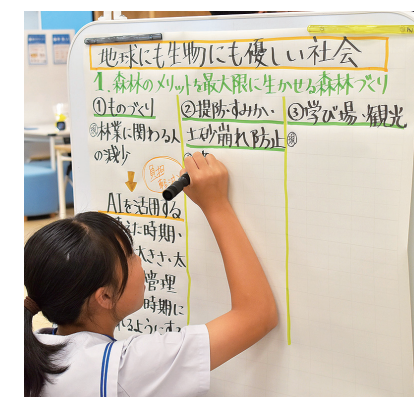 地球にも生物にも優しい社会
1.森林のメリットを最大限に生かせる森林づくり
①ものづくり
現林業に関わる人
の減少
負担
AIを活用する
に時期・
大きさ・太
管理
時期に
れるようにする
②堤防・すみか・
土砂崩れ防止
③学び場・観光
現